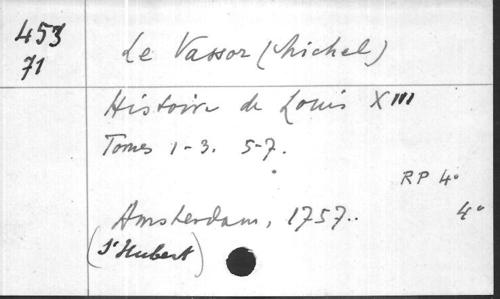 453
71
Le Vassor (Michel)
Histoire de Louis XIII
Tomes 1-3. 5-7.
RP 4°
4°
Amsterdam, 1757..
(St Hubert)